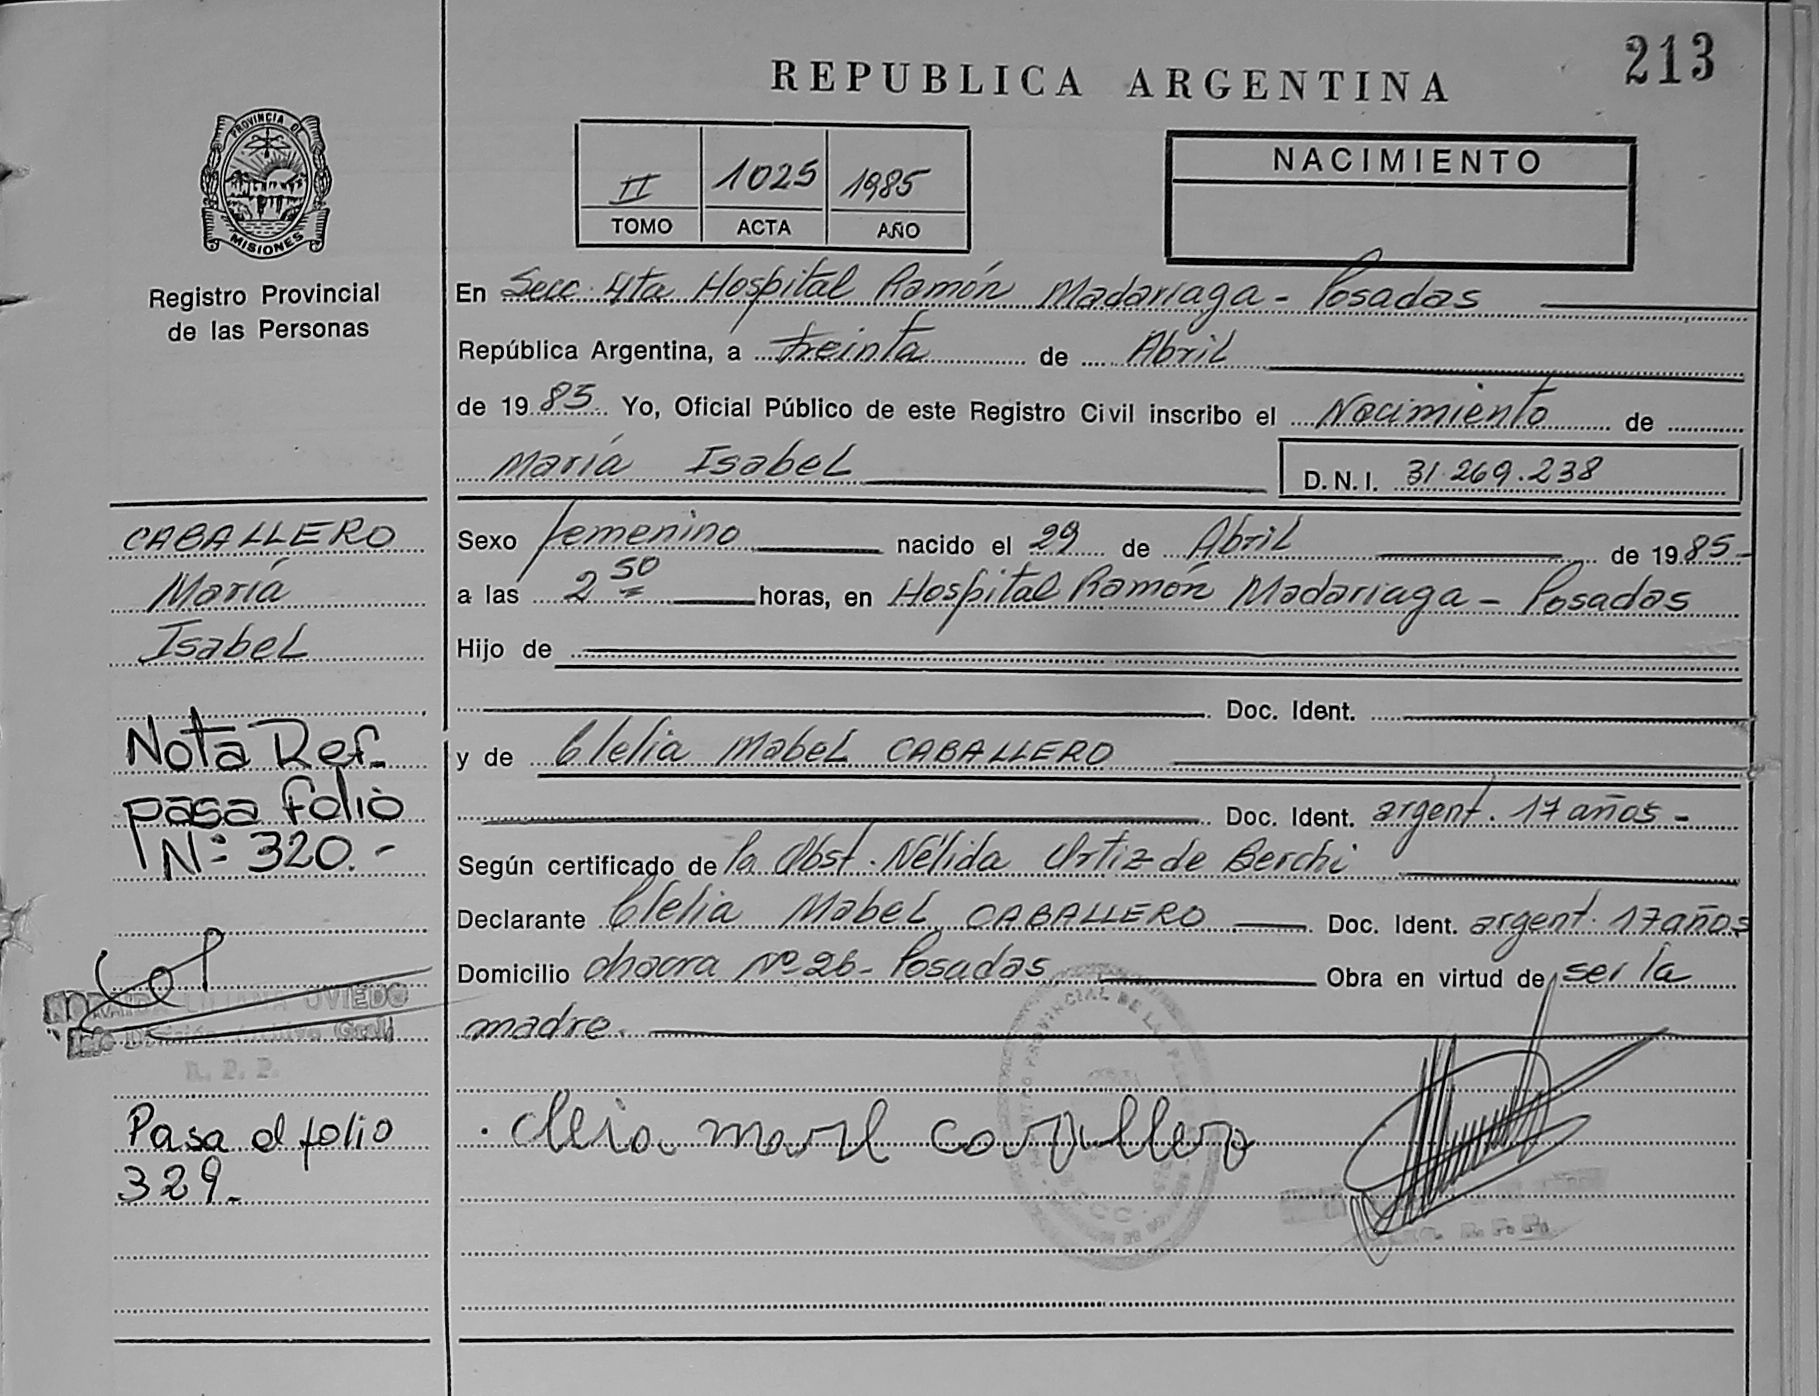 213
REPUBLICA ARGENTINA
PROVINCIA DE
MISIONES
Registro Provincial
de las Personas
II 1025 1985
TOMO ACTA AÑO
NACIMIENTO
En Secc. 4ta Hospital Ramón Madariaga - Posadas
República Argentina, a treinta de Abril
de 1985 Yo, Oficial Público de este Registro Civil inscribo el Nacimiento de
María Isabel D.N.I. 31.269.238
CABALLERO
María
Isabel
Sexo femenino nacido el 29 de Abril de 1985-
a las 2 50 horas, en Hospital Ramón Madariaga - Posadas
Hijo de
Doc. Ident.
y de Clelia Mabel CABALLERO
Doc. Ident. argent. 17 años -
Según certificado de la Obst. Nélida Ortiz de Berchi
Declarante Clelia Mabel CABALLERO Doc. Ident. argent. 17 años
Domicilio chacra Nº 26- Posadas Obra en virtud de ser la
madre.
Nota Ref.
pasa folio
Nº 320.-
OVIEDO
R. P. P.
Pasa al folio
329-
clelia mavel cavallero
R. P. P.